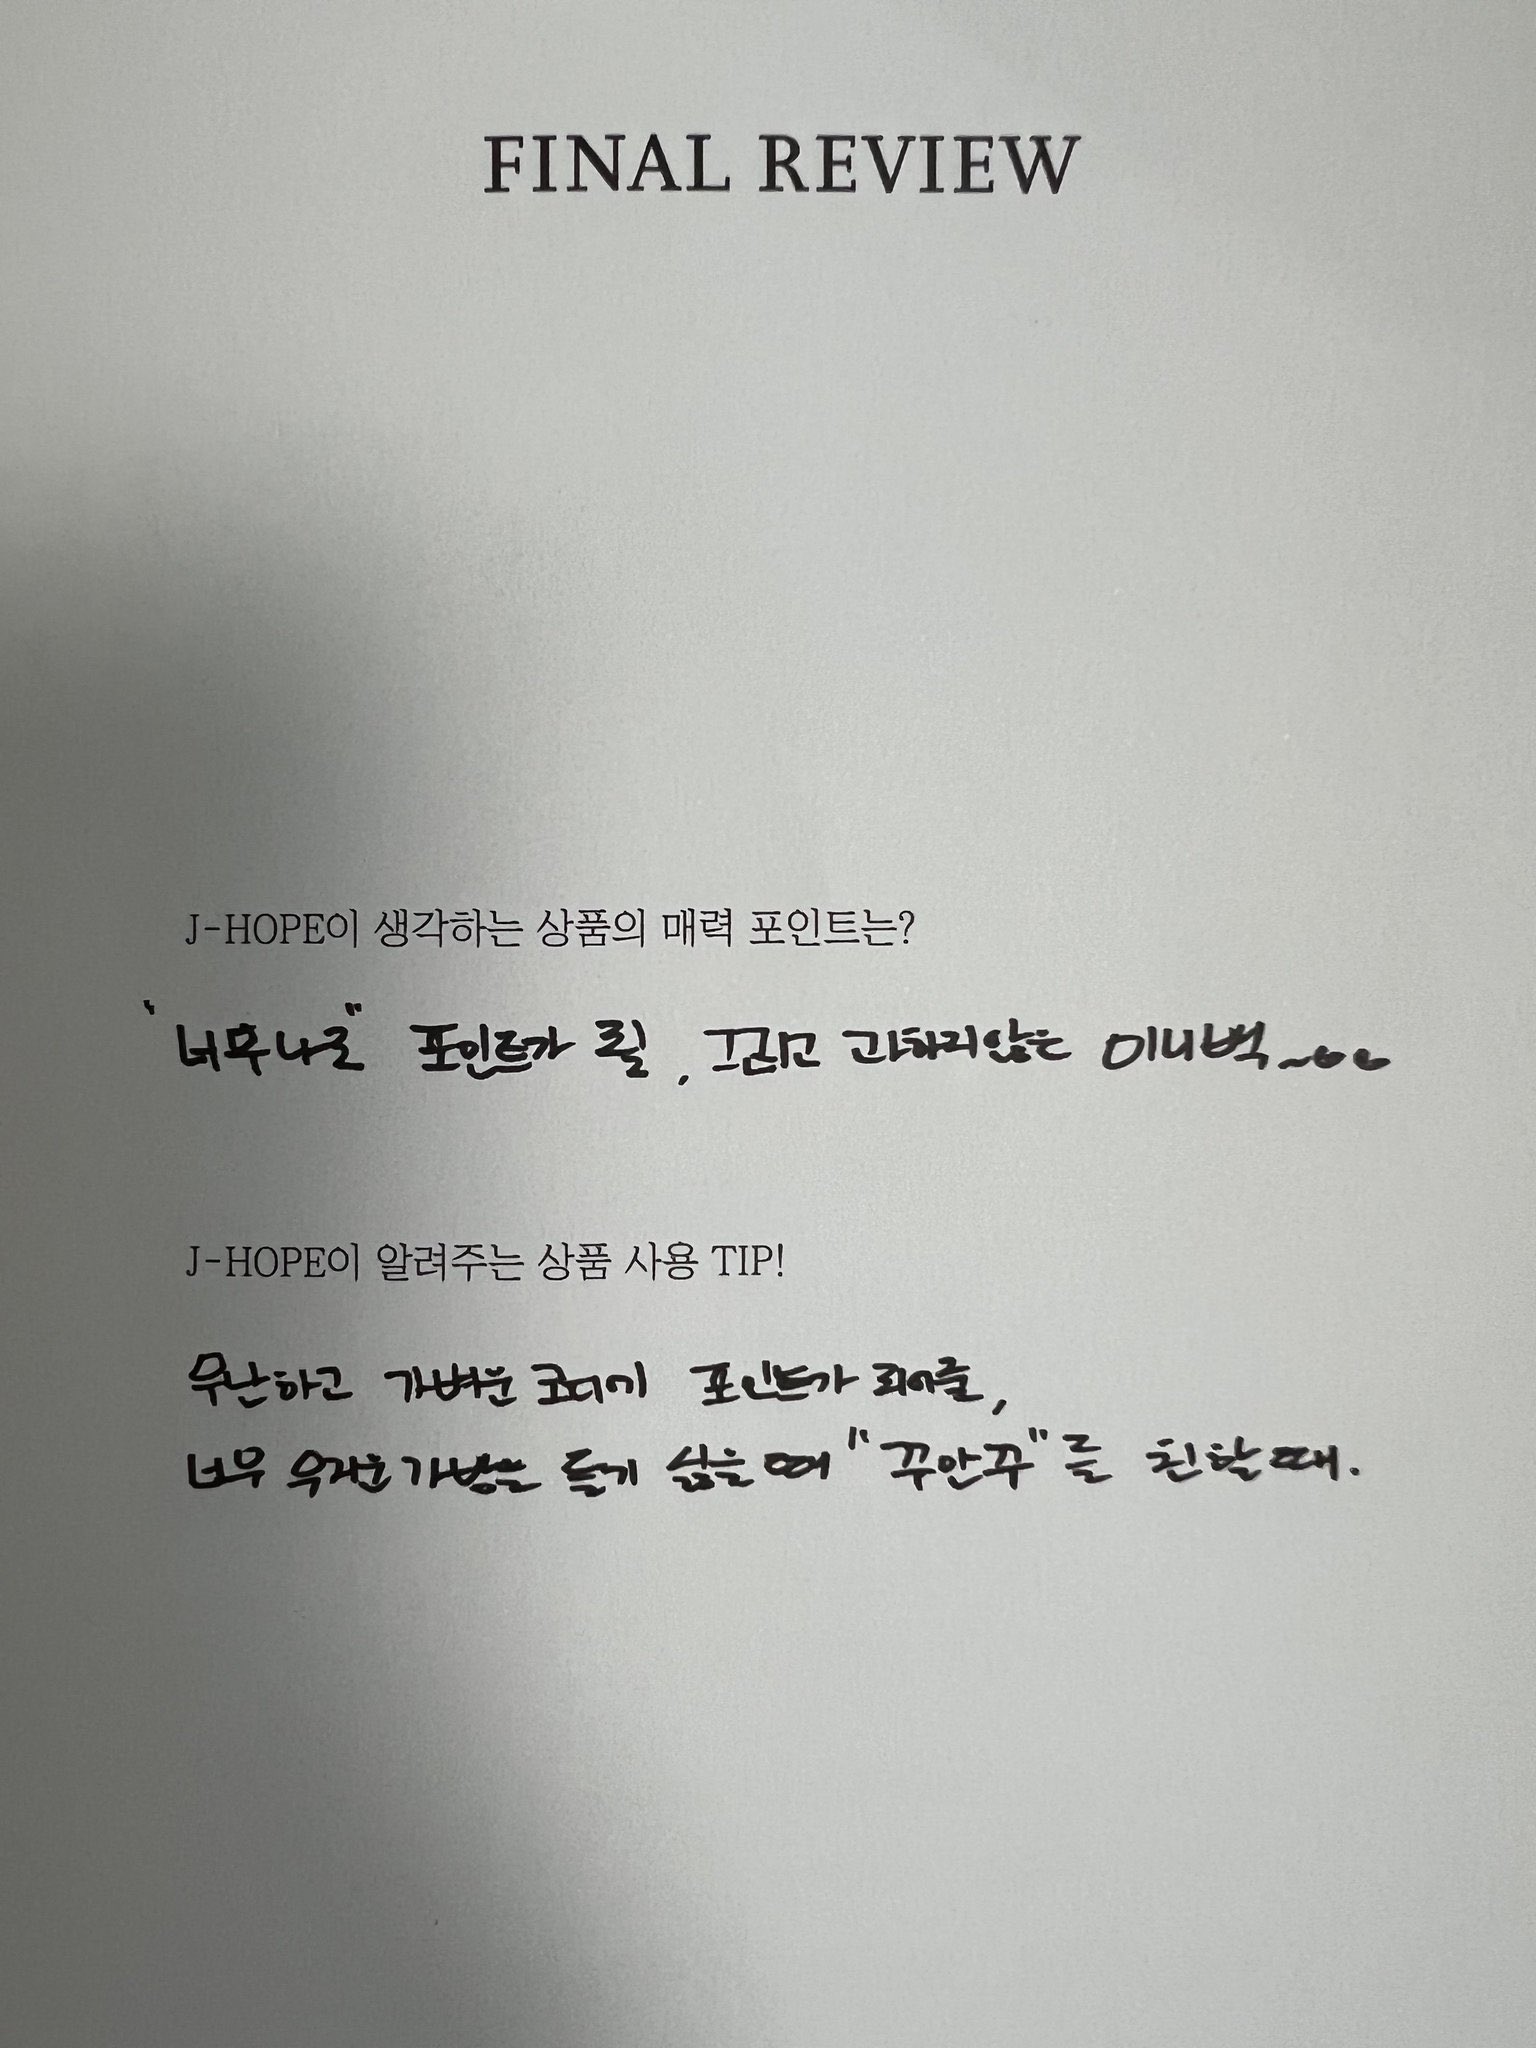 FINAL REVIEW
J-HOPE이 생각하는 상품의 매력 포인트는?
"너무나도" 포인트가 될, 그리고 과하지않는 미니백~
J-HOPE이 알려주는 상품 사용 TIP!
무난하고 가벼운 코디에 포인트가 되어줄,
너무 무거운 가방은 들기 싫을 때 "꾸안꾸"를 원할 때.